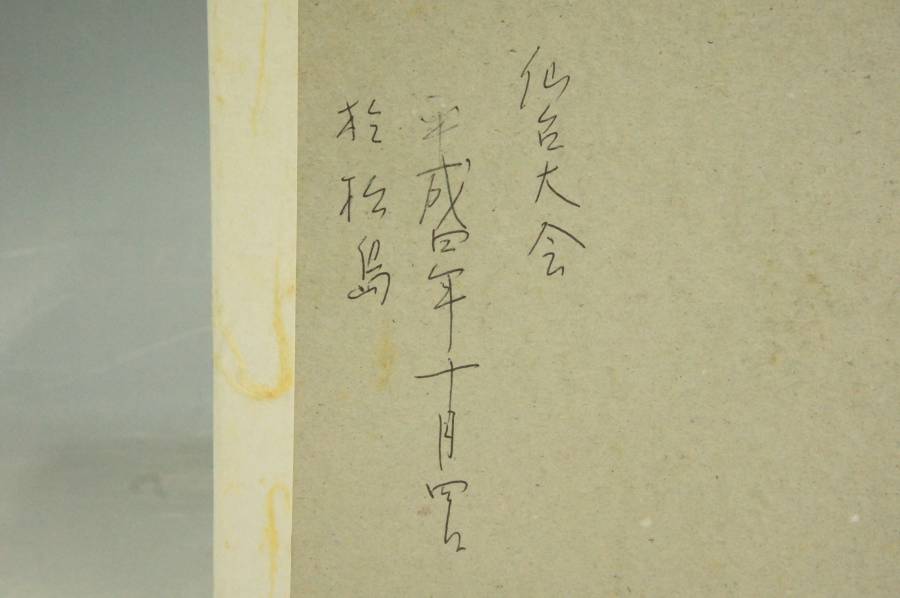 仙台大会
平成四年十月四日
於松島